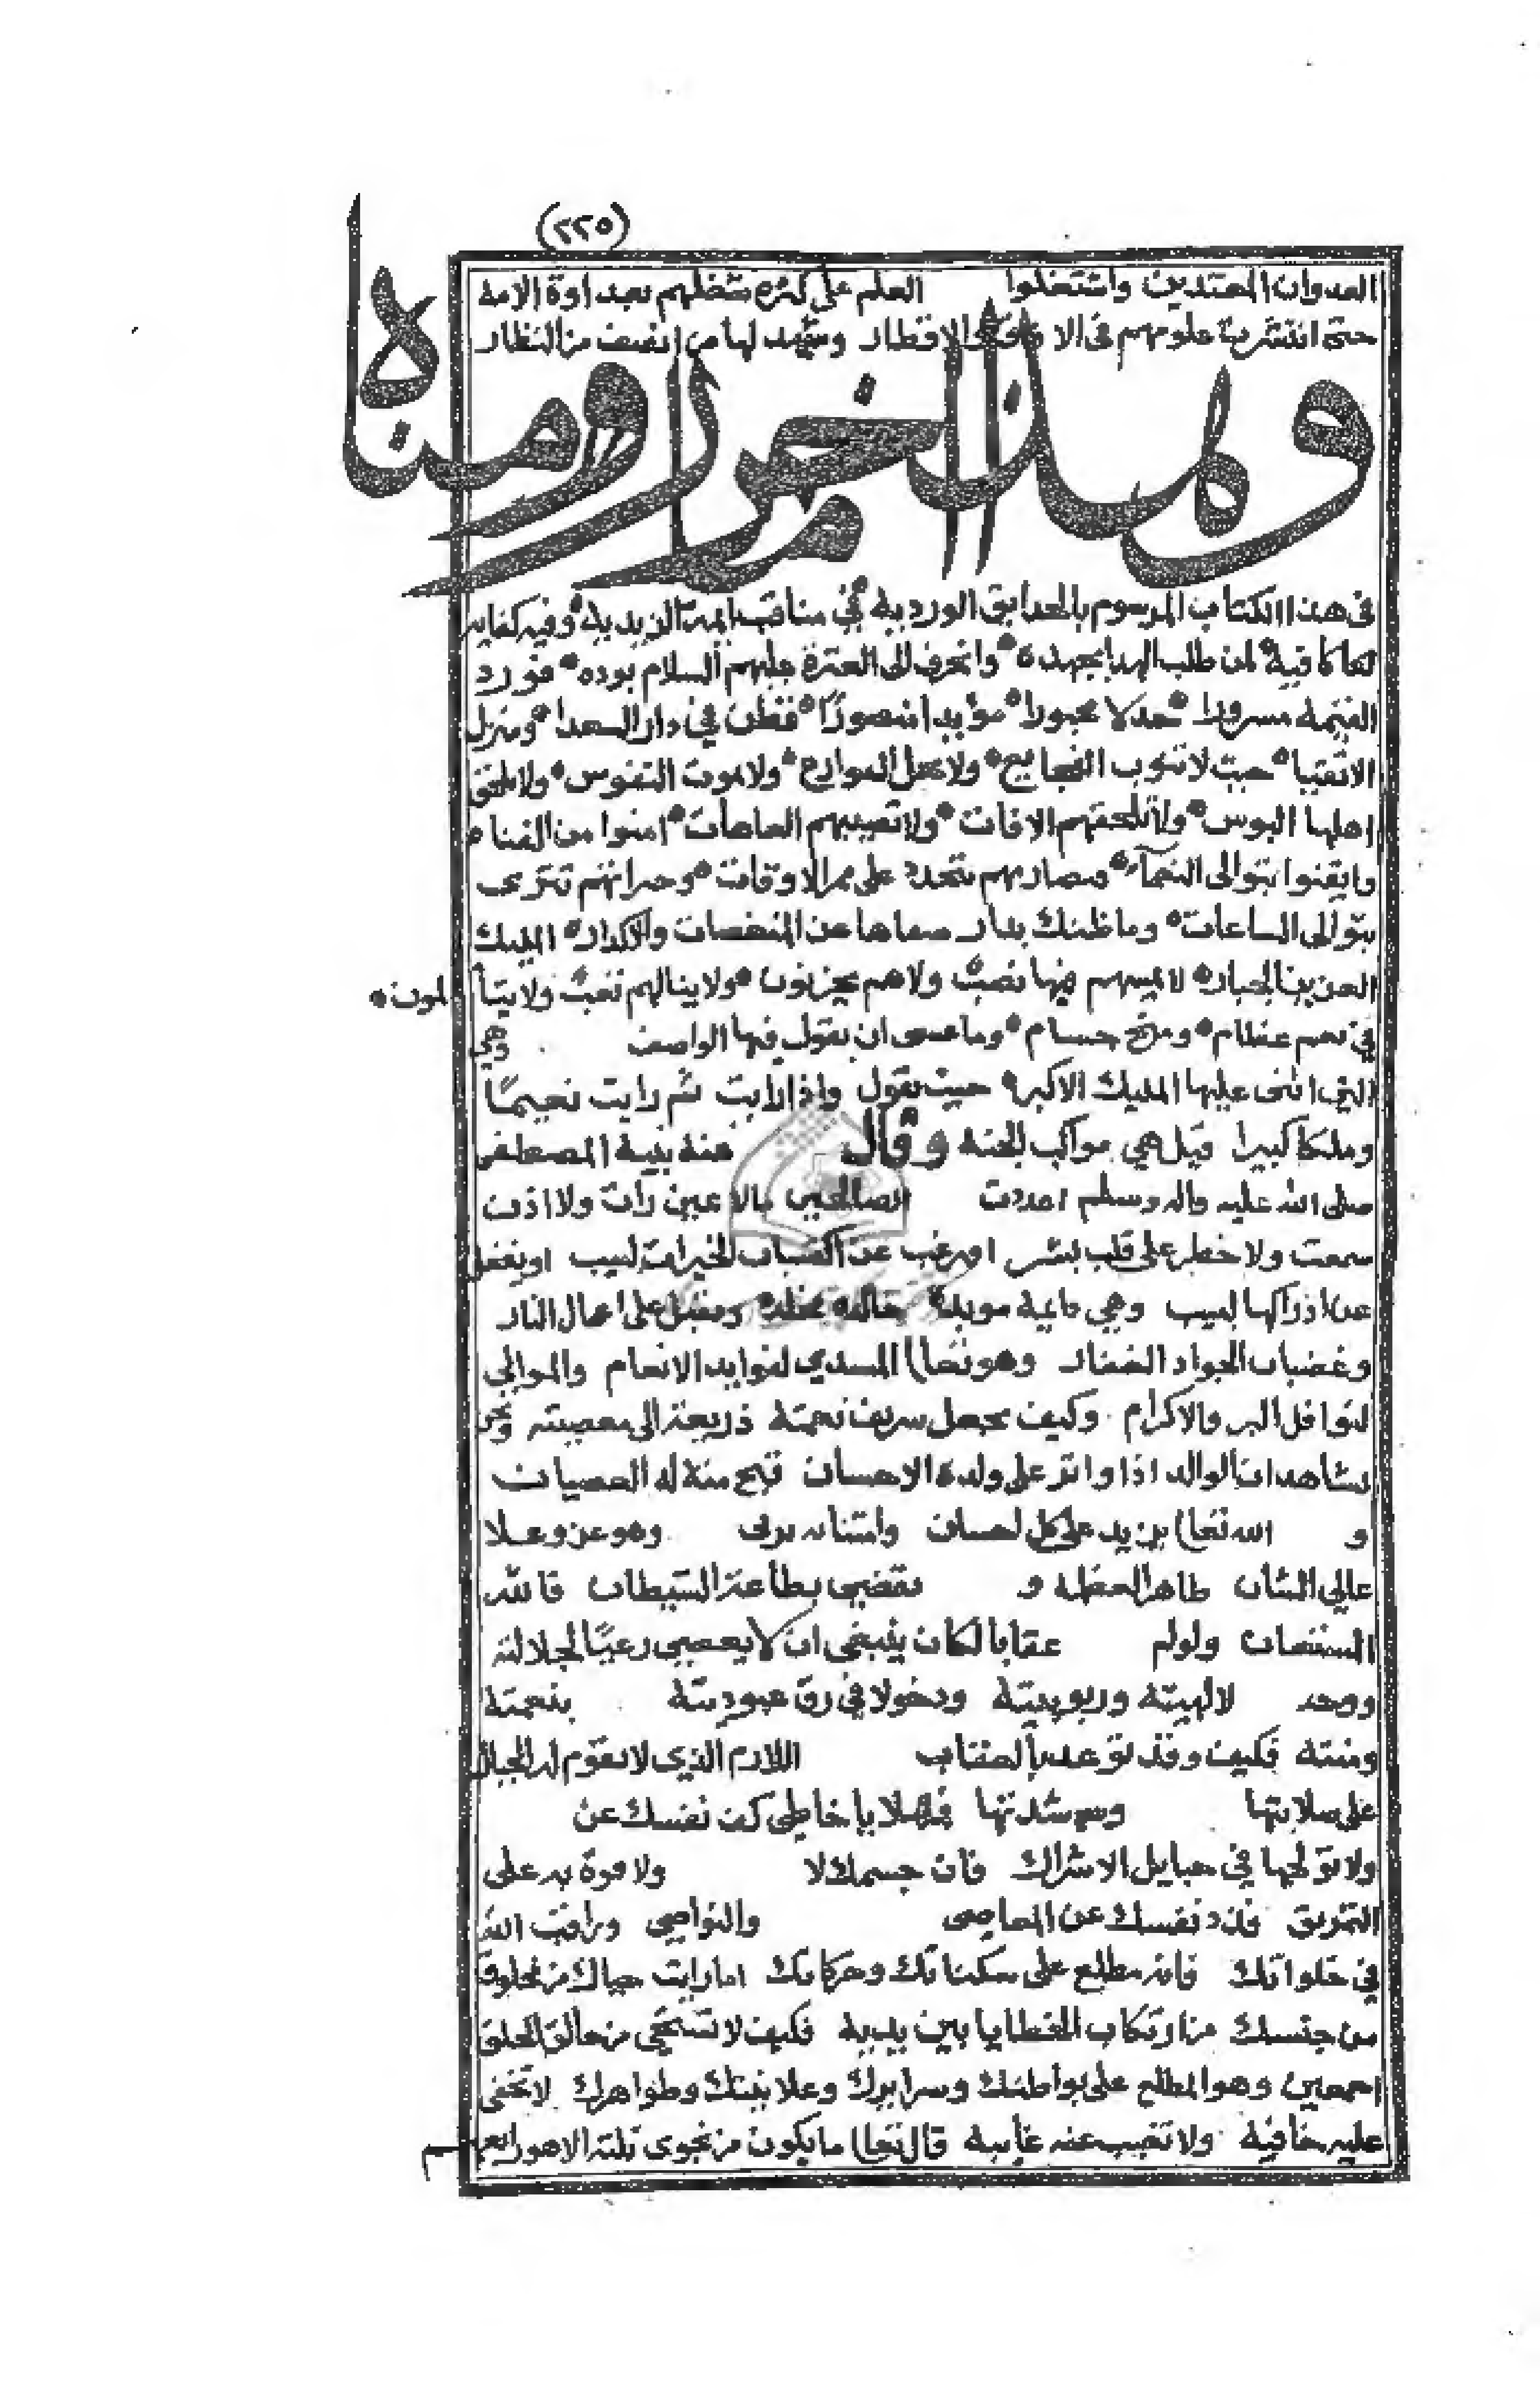 (٢٢٥)
العدوان المعتدين واشتغلوا العلم على كثره شغلهم بعداوة الامة
حتى انتشرت علومهم فى الافاق والاقطار وشهد لها من انصف من النظار
وهذا اخر ما رمناه
فى هذا الكتاب المرسوم بالحدايق الوردية في مناقب ايمة الزيدية وفيه كفايه
لمن طلب الهدا بجهده وانحرف الى العترة عليهم السلام بوده فورد
القيمه مسرورا جدلا محبورا مؤيدا منصورًا فقطن في دار السعدا ومنزل
الاتقيا حيث لا تنوب الفجايع ولا تحل القوارع ولا تموت النفوس ولا يلحق
اهلها البوس ولا تلحقهم الافات ولا تصيبهم العاهات امنوا من الفناء
وايقنوا بتوالى النعمآء تتجدد على ممر الاوقات تترى
بتوالى الساعات وما ظنك بدار صفاها عن المنغصات والاكدار المليك
العزيز الجبار لا يمسهم فيها نصبٌ ولا هم يحزنون ولا ينالهم تعبٌ ولا يتألمون
في نعم عظام ومنح جسام وما عسى ان يقول فيها الواصف وهي
التي اثنى عليها المليك الاكبر حيث يقول واذا رايت ثم رايت نعيمًا
وملكا كبيرا قيل هي مواكب الجنه وقال عنه نبيه المصطفى
صلى الله عليه واله وسلم اعددت الصالحين مالا عين رات ولا اذن
سمعت ولا خطر على قلب بشر اميرغب عن اكتساب الخيرات لبيب او يغفل
عن ادراكها لبيب وهي دايمة موبدة ومقبل على اعمال النار
وغضبات الجواد الغفار وهو تعا المسدي لفوايد الانعام والموالي
لنوافل البر والاكرام وكيف يجعل سريف نعمته ذريعة الى معصيته ونحن
نشاهد ان الوالد اذا واتر على ولده الاحسان قبح منه له العصيان
و الله تعا يزيد على كل احسان وامتنانه يربى وهو عز وعلا
عالي الشان ظاهر العظمه و يقضي بطاعة الشيطان فالله
المستعان ولولم عقابا لكان ينبغي ان لا يعصى رعيًا لجلالته
لالهيته وربوبيته ودخولا في رق عبوديته بنعمته
ومنته فكيف وقد توعد بالعقاب اللازم الذي لا تقوم له الجبال
على صلابتها وشدتها فهلا يا خاطى كف نفسك عن
ولا تولجها في حبايل الاشراك فان جسمك لا ولا قوة به على
التمزيق فذد نفسك عن المعاصي والنواصي وراقب الله
في خلواتك فانه مطلع على سكناتك وحركاتك اما رايت حياك من مخلوق
من جنسك من ارتكاب الخطايا بين يديه فكيف لا تستحي من خالق الخلق
اجمعين وهو المطلع على بواطنك وسرايرك وعلانيتك وظواهرك لا تخفى
عليه خافية ولا تغيب عنه غايبه قال تعا ما يكون من نجوى ثلثه الا هو رابعهم